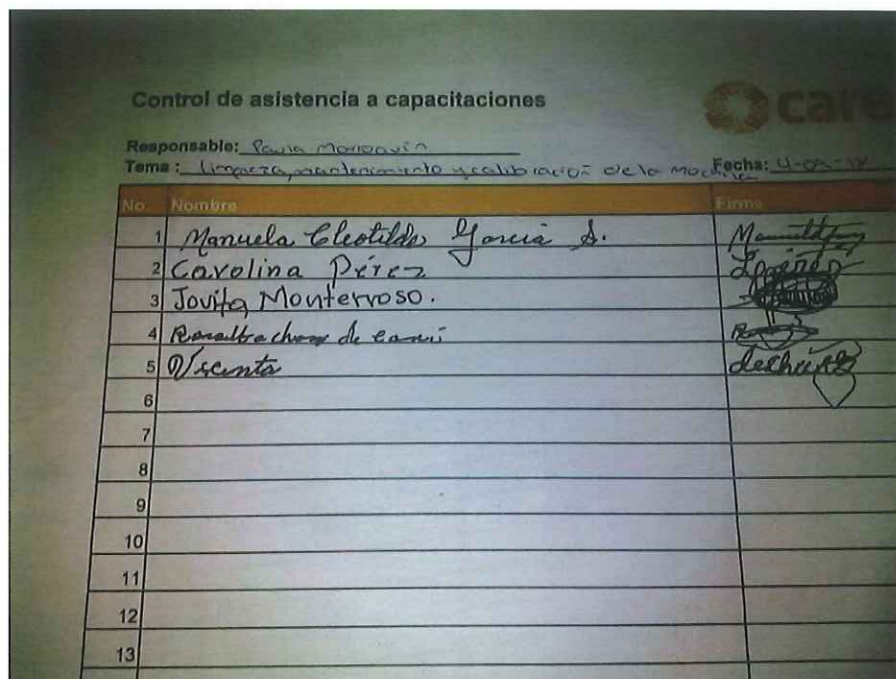 Control de asistencia a capacitaciones
care
Responsable: Paula Marroquín
Tema: Limpieza, mantenimiento y calibración de la Fecha: 4-04-
No. Nombre Firma
1 Manuela Cleotilde García S.
2 Carolina Pérez
3 Jovita Monterroso.
4 de
5 Vicenta
6
7
8
9
10
11
12
13